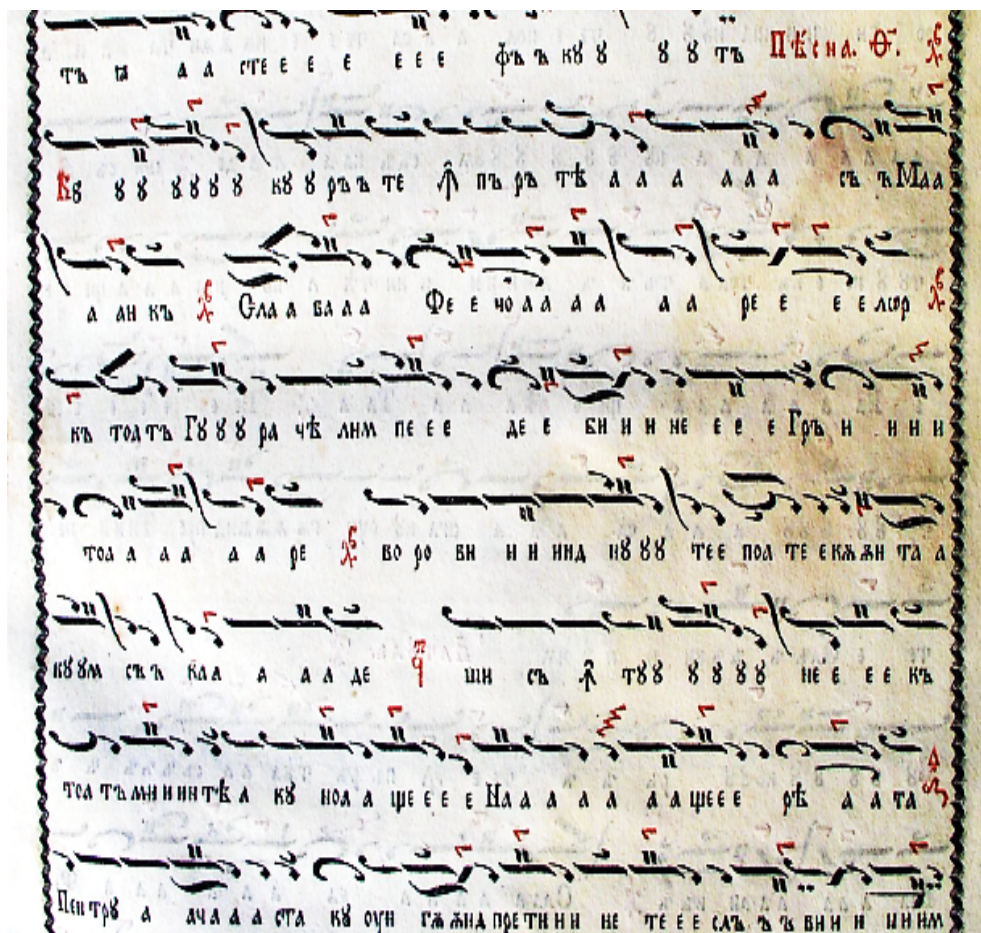 тъ ꙗ а а стее е е е е е е фъ ъ кꙋ ꙋ ꙋ ꙋ тъ Пѣсна. Ѳ҃.
Кꙋ ꙋꙋ ꙋꙋꙋꙋ кꙋꙋ ръ ъ те ꙟ пъ ръ тѣ а а а а а а а съ ъ Маа
а ан къ Слаа ва а а Фе е чо а а а а а а ре е е е лор
къ тоа тъ Гꙋꙋꙋ ра чѣ лим пе е е де е би и и не е е е Гръ и и и и
тоа а а а а а ре во ро би и и и инд нꙋꙋꙋ те е поа те е кѫѫн та а
кꙋꙋм съ ъ каа а а а а де ши съ ꙟ тꙋꙋ ꙋꙋꙋꙋ не е е е къ
тоа тъ минин тѣ а кꙋ ноа а ще е е е На а а а а а а ще е е рѣ а а та
Пентрꙋ а ача а а ста кꙋ оун гѫѫнд претини и не те е е слъ ъ ъ вии и и и им